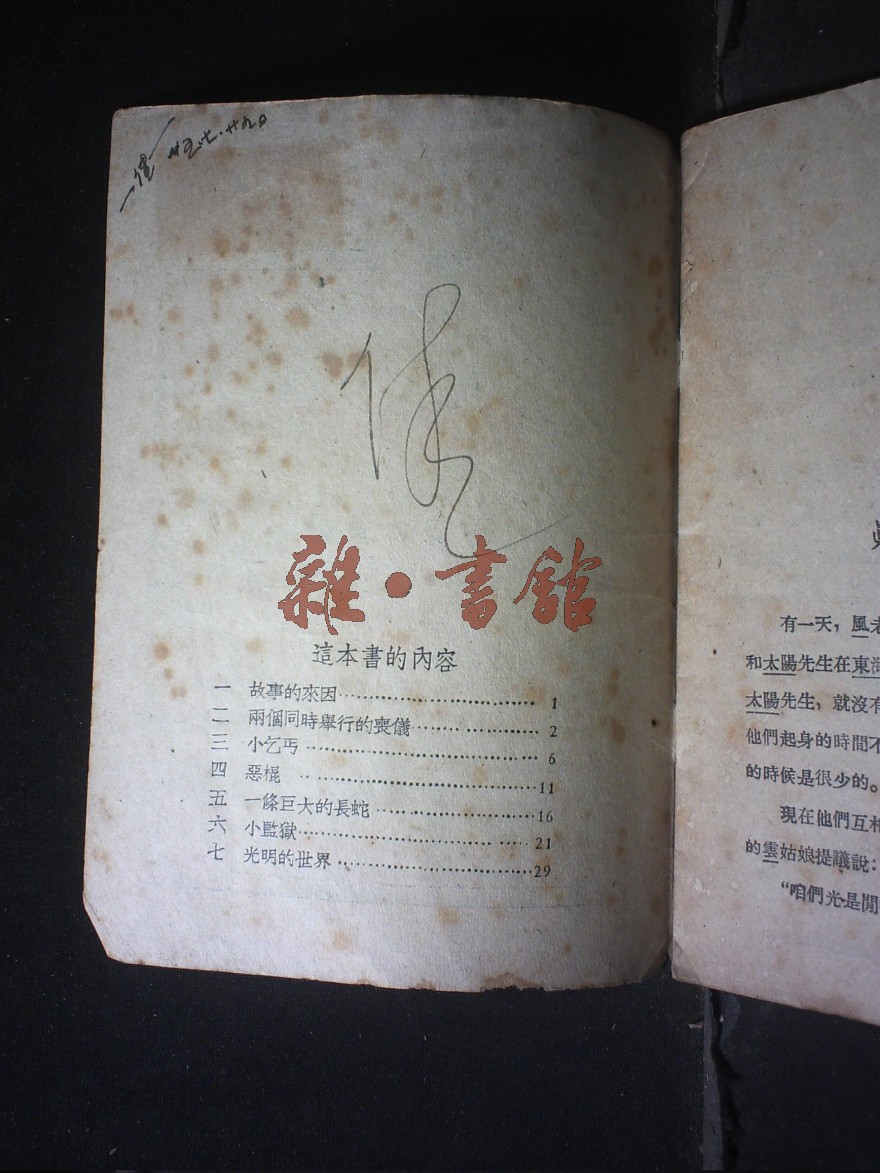 雜·書舘
這本書的內容
一 故事的來因 1
二 兩個同時舉行的喪儀 2
三 小乞丐 6
四 惡棍 11
五 一條巨大的長蛇 16
六 小監獄 21
七 光明的世界 29
有一天，風老
和太陽先生在東海
太陽先生，就沒有
他們起身的時間不
的時候是很少的。
現在他們互相
的雲姑娘提議說：
“咱們光是閒